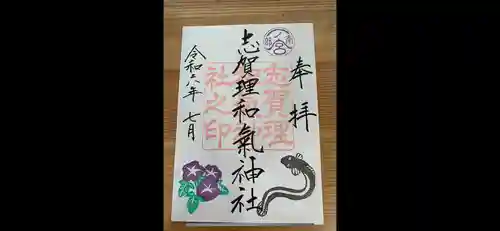 奉拝
志賀理和氣神社
志賀理
和氣神
社之印
令和六年 七月